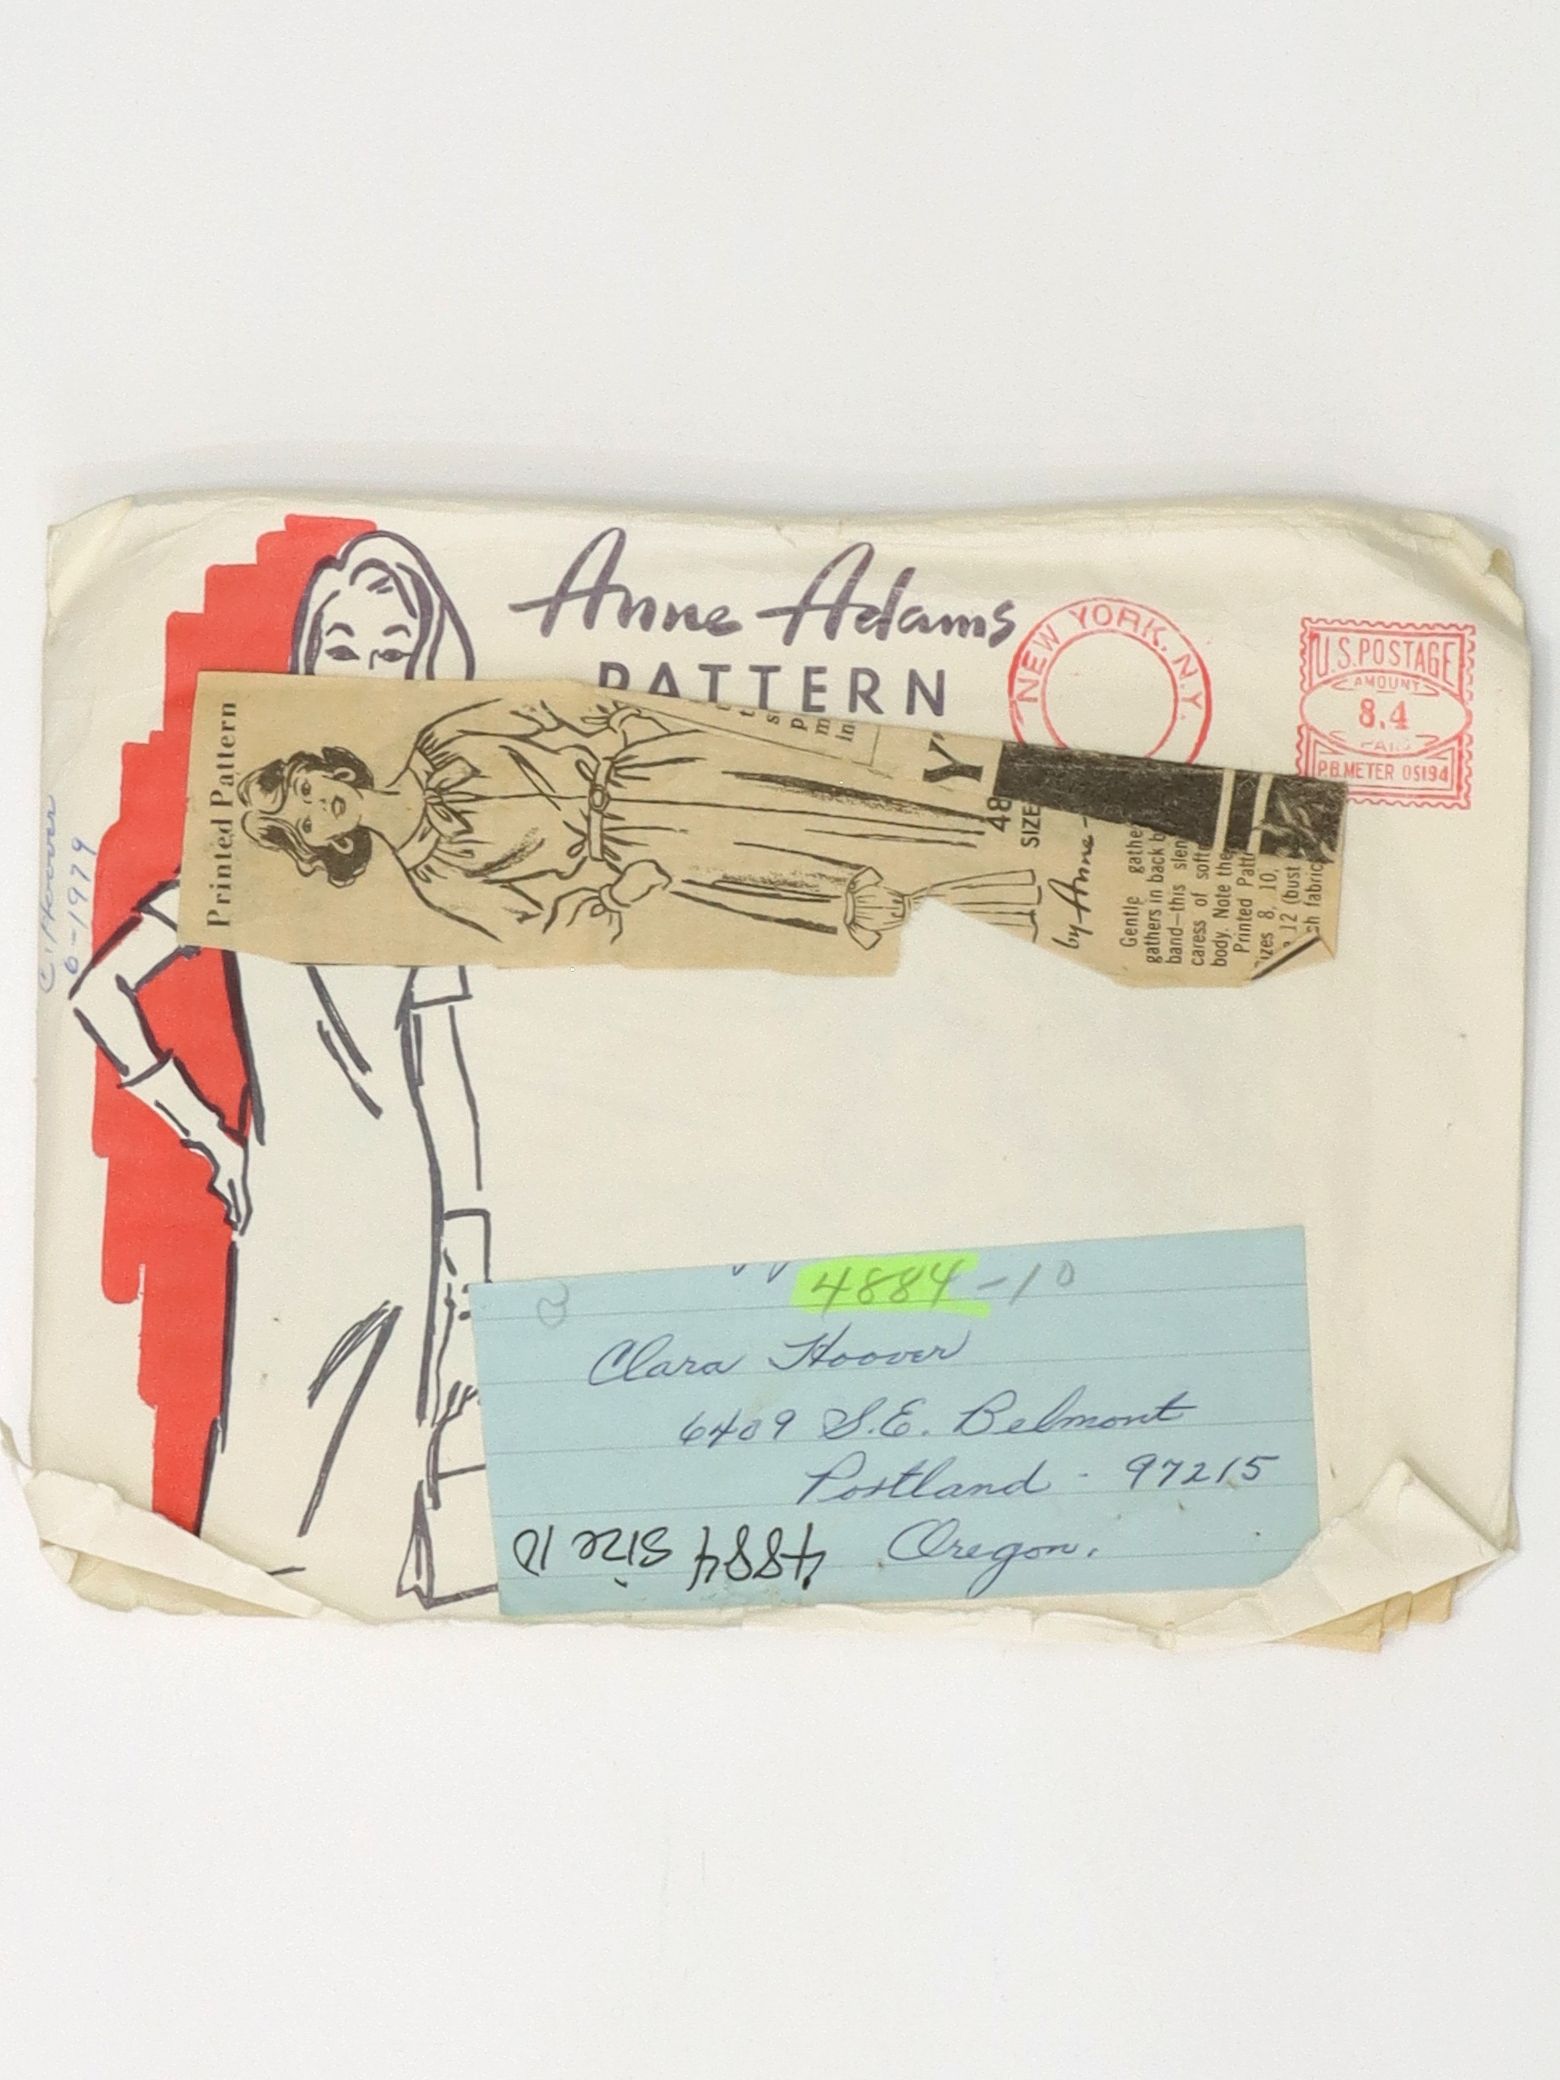 Anne Adams
PATTERN
NEW YORK, N.Y.
U.S. POSTAGE
AMOUNT
8.4
PAID
P.B. METER 05194
C. Hoover
6-1979
Printed Pattern
t
s
p
m
in
Y
48
SIZE
by Anne
Gentle gathe
gathers in back b
band—this slen
caress of soft
body. Note the
Printed Patt
izes 8, 10,
12 (bust
ch fabric
4884-10
Clara Hoover
6409 S.E. Belmont
Portland - 97215
Oregon.
4884 Size 10